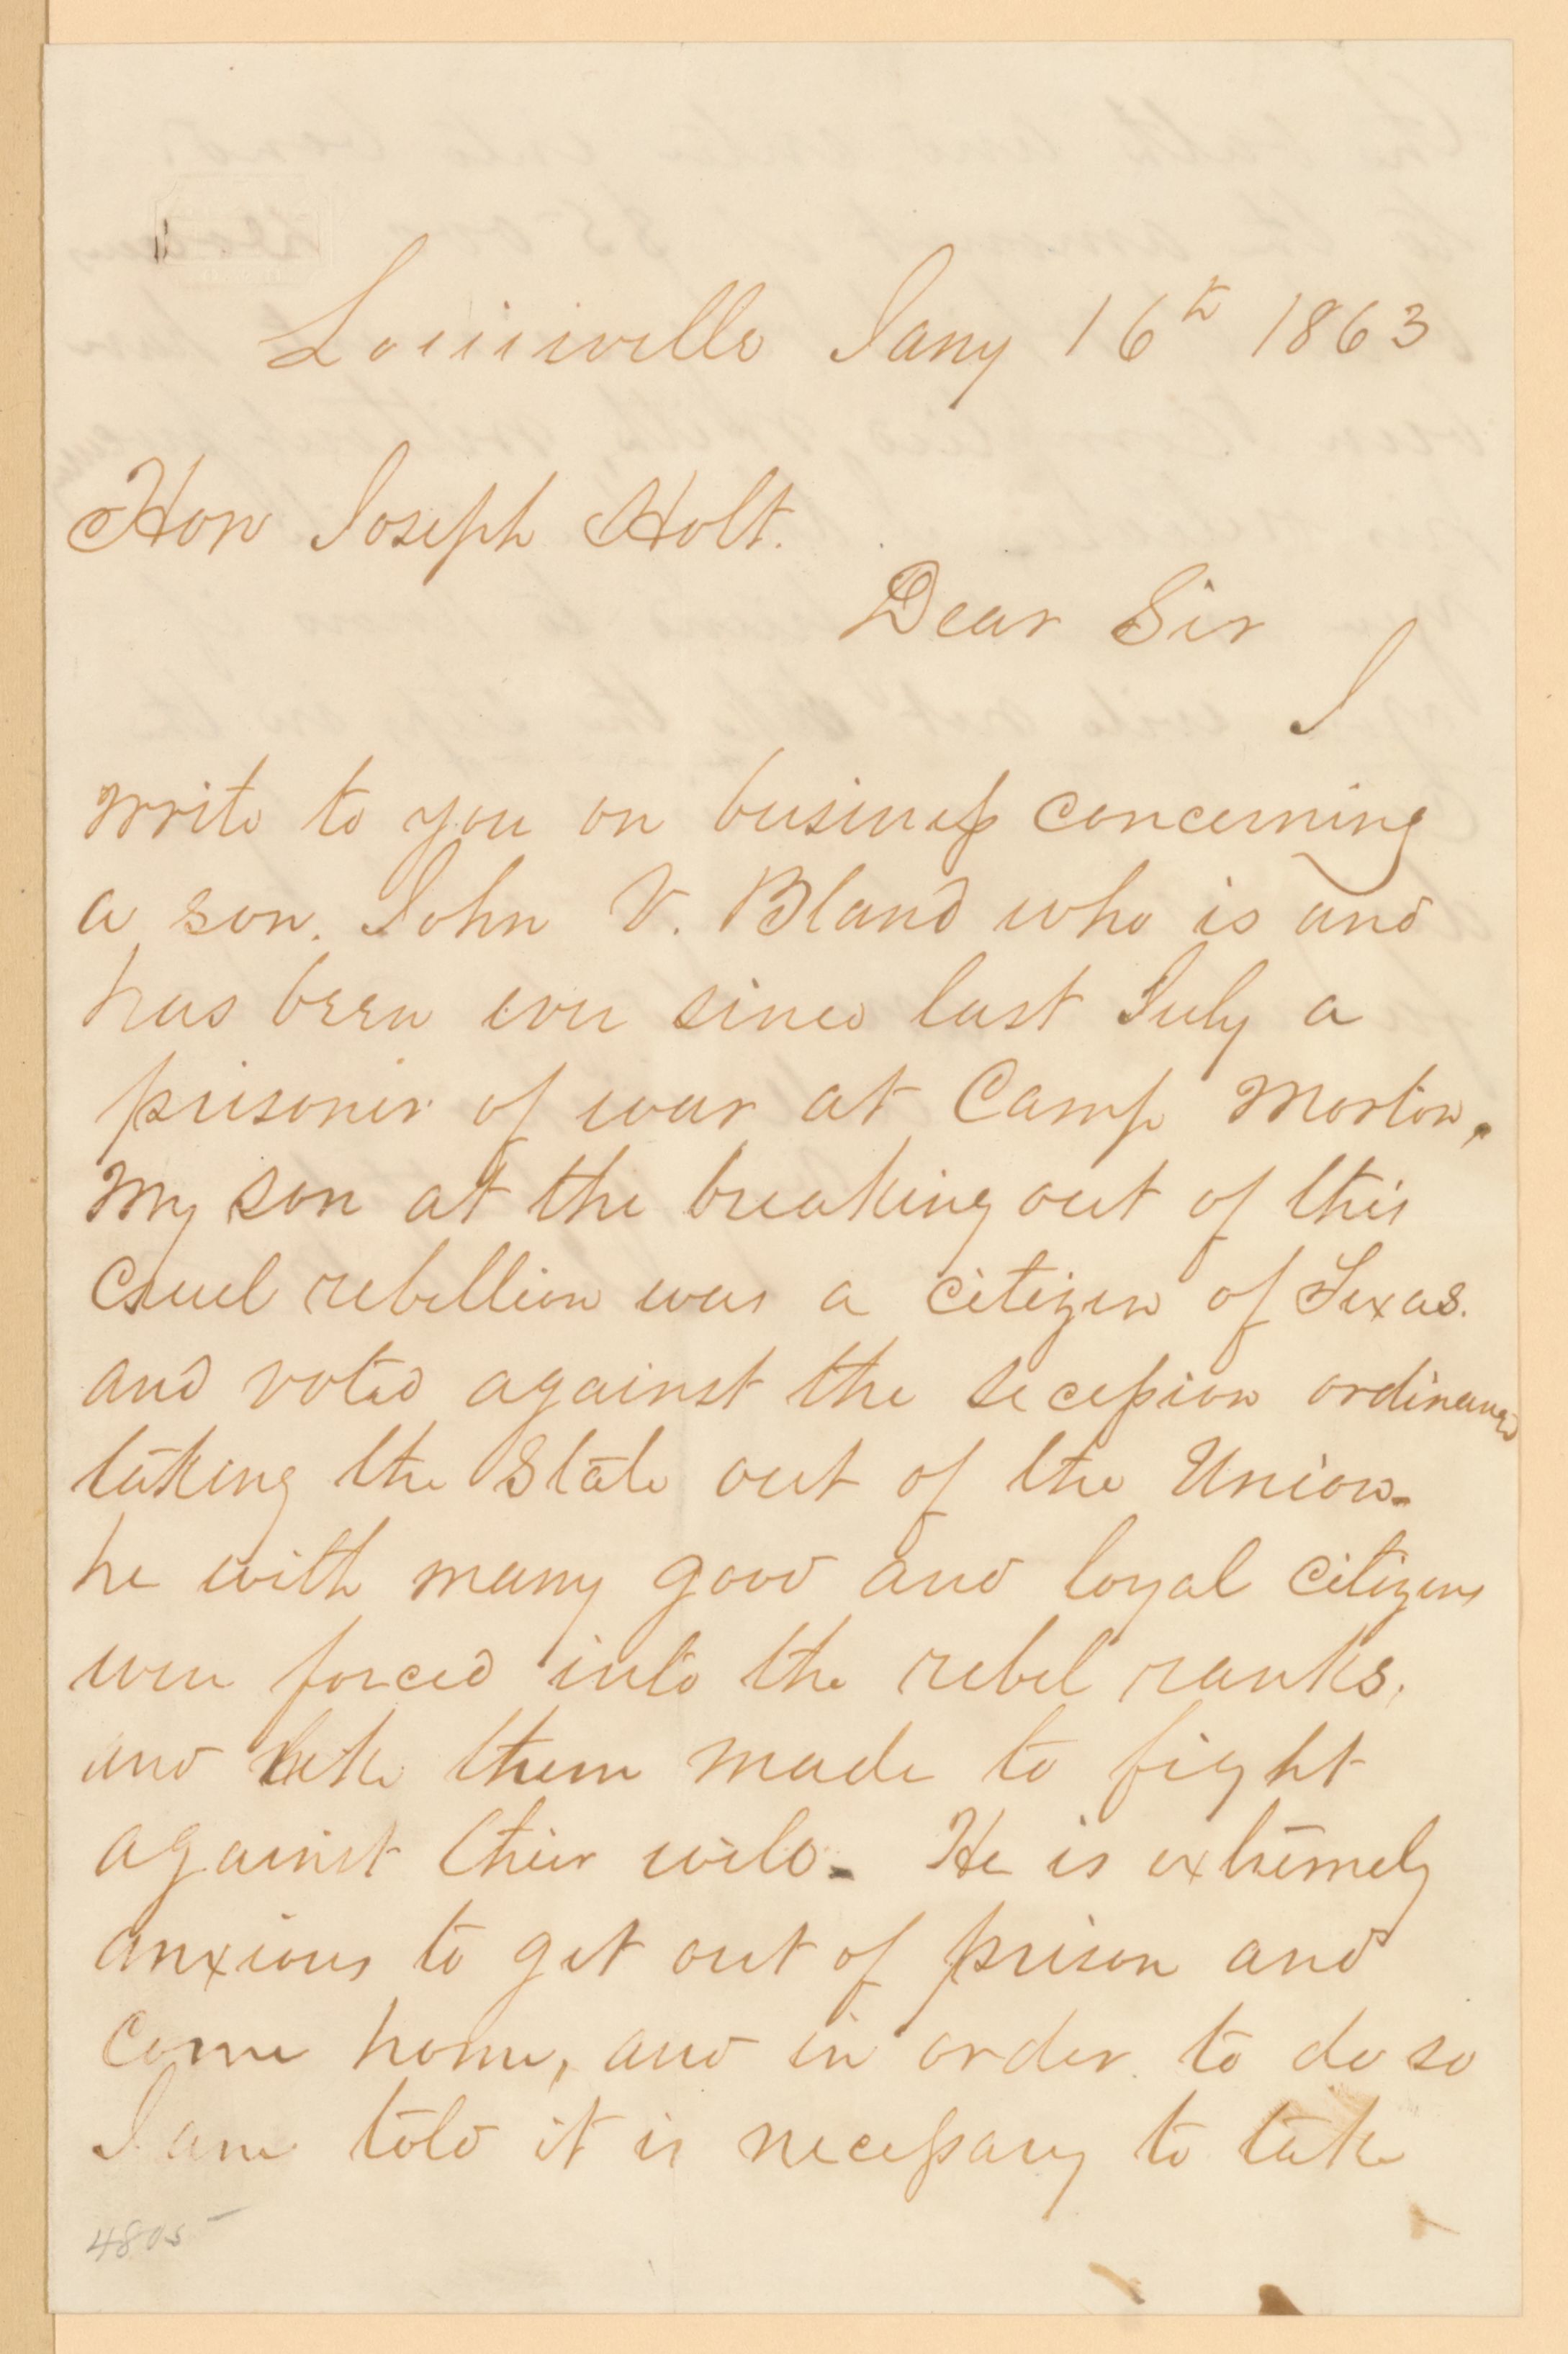 Louisville Jany 16th 1863
Hon Joseph Holt.
Dear Sir
I
write to you on business concerning
a son. John V. Bland who is and
has been ever since last July a
prisoner of war at Camp Morton,
My son at the breaking out of this
cruel rebellion was a citizen of Texas.
and voted against the secession ordinance
taking the State out of the Union-
he with many good and loyal citizens
were forced into the rebel ranks.
and them made to fight
against their will- He is extremely
anxious to get out of prison and
come home, and in order to do so
I am told it is necessary to take
4805